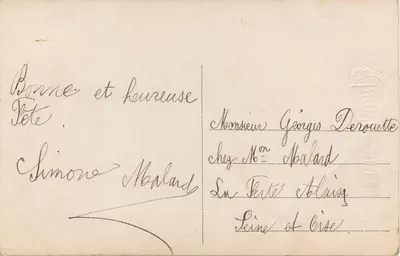 Bonne et heureuse
Fête
Simone Malard
Monsieur Géorges Derouette
chez Mon Malard
La Ferté Alais
Seine et Oise